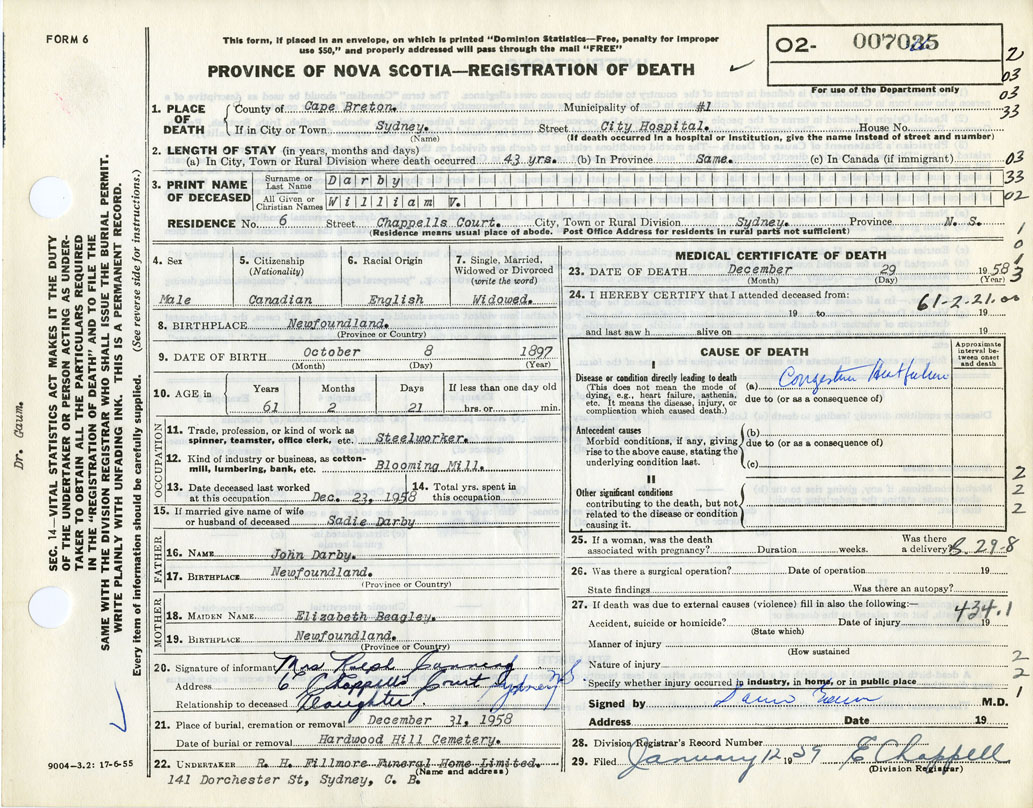 FORM 6
This form, if placed in an envelope, on which is printed "Dominion Statistics—Free, penalty for improper
use $50," and properly addressed will pass through the mail "FREE"
PROVINCE OF NOVA SCOTIA—REGISTRATION OF DEATH
02- 007035
For use of the Department only
2
03
03
33
1. PLACE OF DEATH
County of Cape Breton. Municipality of #1
If in City or Town Sydney. Street City Hospital. House No.
(Name) (If death occurred in a hospital or institution, give the name instead of street and number)
2. LENGTH OF STAY (in years, months and days)
(a) In City, Town or Rural Division where death occurred 43 yrs. (b) In Province Same. (c) In Canada (if immigrant)
03
3. PRINT NAME OF DECEASED
Surname or Last Name Darby
33
All Given or Christian Names William V.
02
RESIDENCE No. 6 Street Chappells Court. City, Town or Rural Division Sydney. Province N. S.
(Residence means usual place of abode. Post Office Address for residents in rural parts not sufficient)
1
0
1
3
4. Sex
Male
5. Citizenship
(Nationality)
Canadian
6. Racial Origin
English
7. Single, Married,
Widowed or Divorced
(write the word)
Widowed.
8. BIRTHPLACE Newfoundland.
(Province or Country)
9. DATE OF BIRTH October 8 1897
(Month) (Day) (Year)
10. AGE in
Years Months Days If less than one day old
61 2 21 hrs. or min.
OCCUPATION
11. Trade, profession, or kind of work as
spinner, teamster, office clerk, etc. Steelworker.
12. Kind of industry or business, as cotton-
mill, lumbering, bank, etc. Blooming Mill.
13. Date deceased last worked
at this occupation Dec. 23, 1958
14. Total yrs. spent in
this occupation
15. If married give name of wife
or husband of deceased Sadie Darby
FATHER
16. NAME John Darby.
17. BIRTHPLACE Newfoundland.
(Province or Country)
MOTHER
18. MAIDEN NAME Elizabeth Beagley.
19. BIRTHPLACE Newfoundland.
(Province or Country)
20. Signature of informant Mrs Ralph Canning
Address 6 Chappells Court Sydney NS
Relationship to deceased Daughter.
21. Place of burial, cremation or removal December 31, 1958
Date of burial or removal Hardwood Hill Cemetery.
22. UNDERTAKER R. H. Fillmore Funeral Home Limited.
(Name and address)
141 Dorchester St, Sydney, C. B.
MEDICAL CERTIFICATE OF DEATH
23. DATE OF DEATH December 29 1958
(Month) (Day) (Year)
24. I HEREBY CERTIFY that I attended deceased from:
61-2-21.00
19 to 19
and last saw h alive on 19
CAUSE OF DEATH
Approximate interval be-tween onset and death
I
Disease or condition directly leading to death
(This does not mean the mode of
dying, e.g., heart failure, asthenia,
etc. It means the disease, injury, or
complication which caused death.)
(a) Congestive Heart failure
due to (or as a consequence of)
Antecedent causes
Morbid conditions, if any, giving
rise to the above cause, stating the
underlying condition last.
(b)
due to (or as a consequence of)
(c)
II
Other significant conditions
contributing to the death, but not
related to the disease or condition
causing it.
2
2
2
25. If a woman, was the death
associated with pregnancy? Duration weeks. Was there
a delivery?
B. 29-8
26. Was there a surgical operation? Date of operation 19
State findings Was there an autopsy?
27. If death was due to external causes (violence) fill in also the following:—
434.1
Accident, suicide or homicide? Date of injury 19
(State which)
Manner of injury
(How sustained
Nature of injury
Specify whether injury occurred in industry, in home, or in public place
2
2
1
Signed by M.D.
Address Date 19
28. Division Registrar's Record Number
29. Filed January 12 1959 E Chappell
(Division Registrar)
SEC. 14—VITAL STATISTICS ACT MAKES IT THE DUTY
OF THE UNDERTAKER OR PERSON ACTING AS UNDER-
TAKER TO OBTAIN ALL THE PARTICULARS REQUIRED
IN THE "REGISTRATION OF DEATH" AND TO FILE THE
SAME WITH THE DIVISION REGISTRAR WHO SHALL ISSUE THE BURIAL PERMIT.
WRITE PLAINLY WITH UNFADING INK. THIS IS A PERMANENT RECORD.
Every item of information should be carefully supplied. (See reverse side for instructions.)
Dr. Gaum.
9004—3.2: 17-6-55